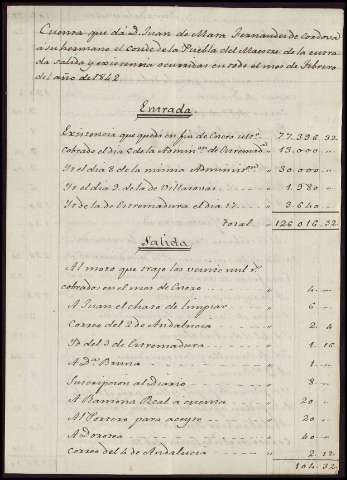 Cuenta que da D. Juan de Mata Fernandez de Cordova
a su hermano el conde de la Puebla del Maestre de la entra
da salida y existencia ocurridas en todo el mes de Febrero
del año de 1842
Entrada
Existencia que quedó en fin de Enero ult.º 77.396 32
Cobrado el dia 5 de la Admin.on de Estremad.ª 13.000
Yt el dia 8 de la misma Administ.on 30.000
Yt el dia 9 de la de Villarosas 1.980
Yt de la de Estremadura el dia 17 3.640
Total 126.016 32
Salida
Al moto que trajo los veinte mil r.s
cobrados en el mes de Enero 4
A Juan el chaso de limpiar 6
Correo del 2 de Andalucia 2 4
Yd del 3 de Estremadura 1 16
A D.ª Bruna 1
Suscripcion al diario 8
A Ramona Real a cuenta 20
Al Portero para aceyte 20
A Dorotea 40
Correo del 4 de Andalucia 2 12
104 32